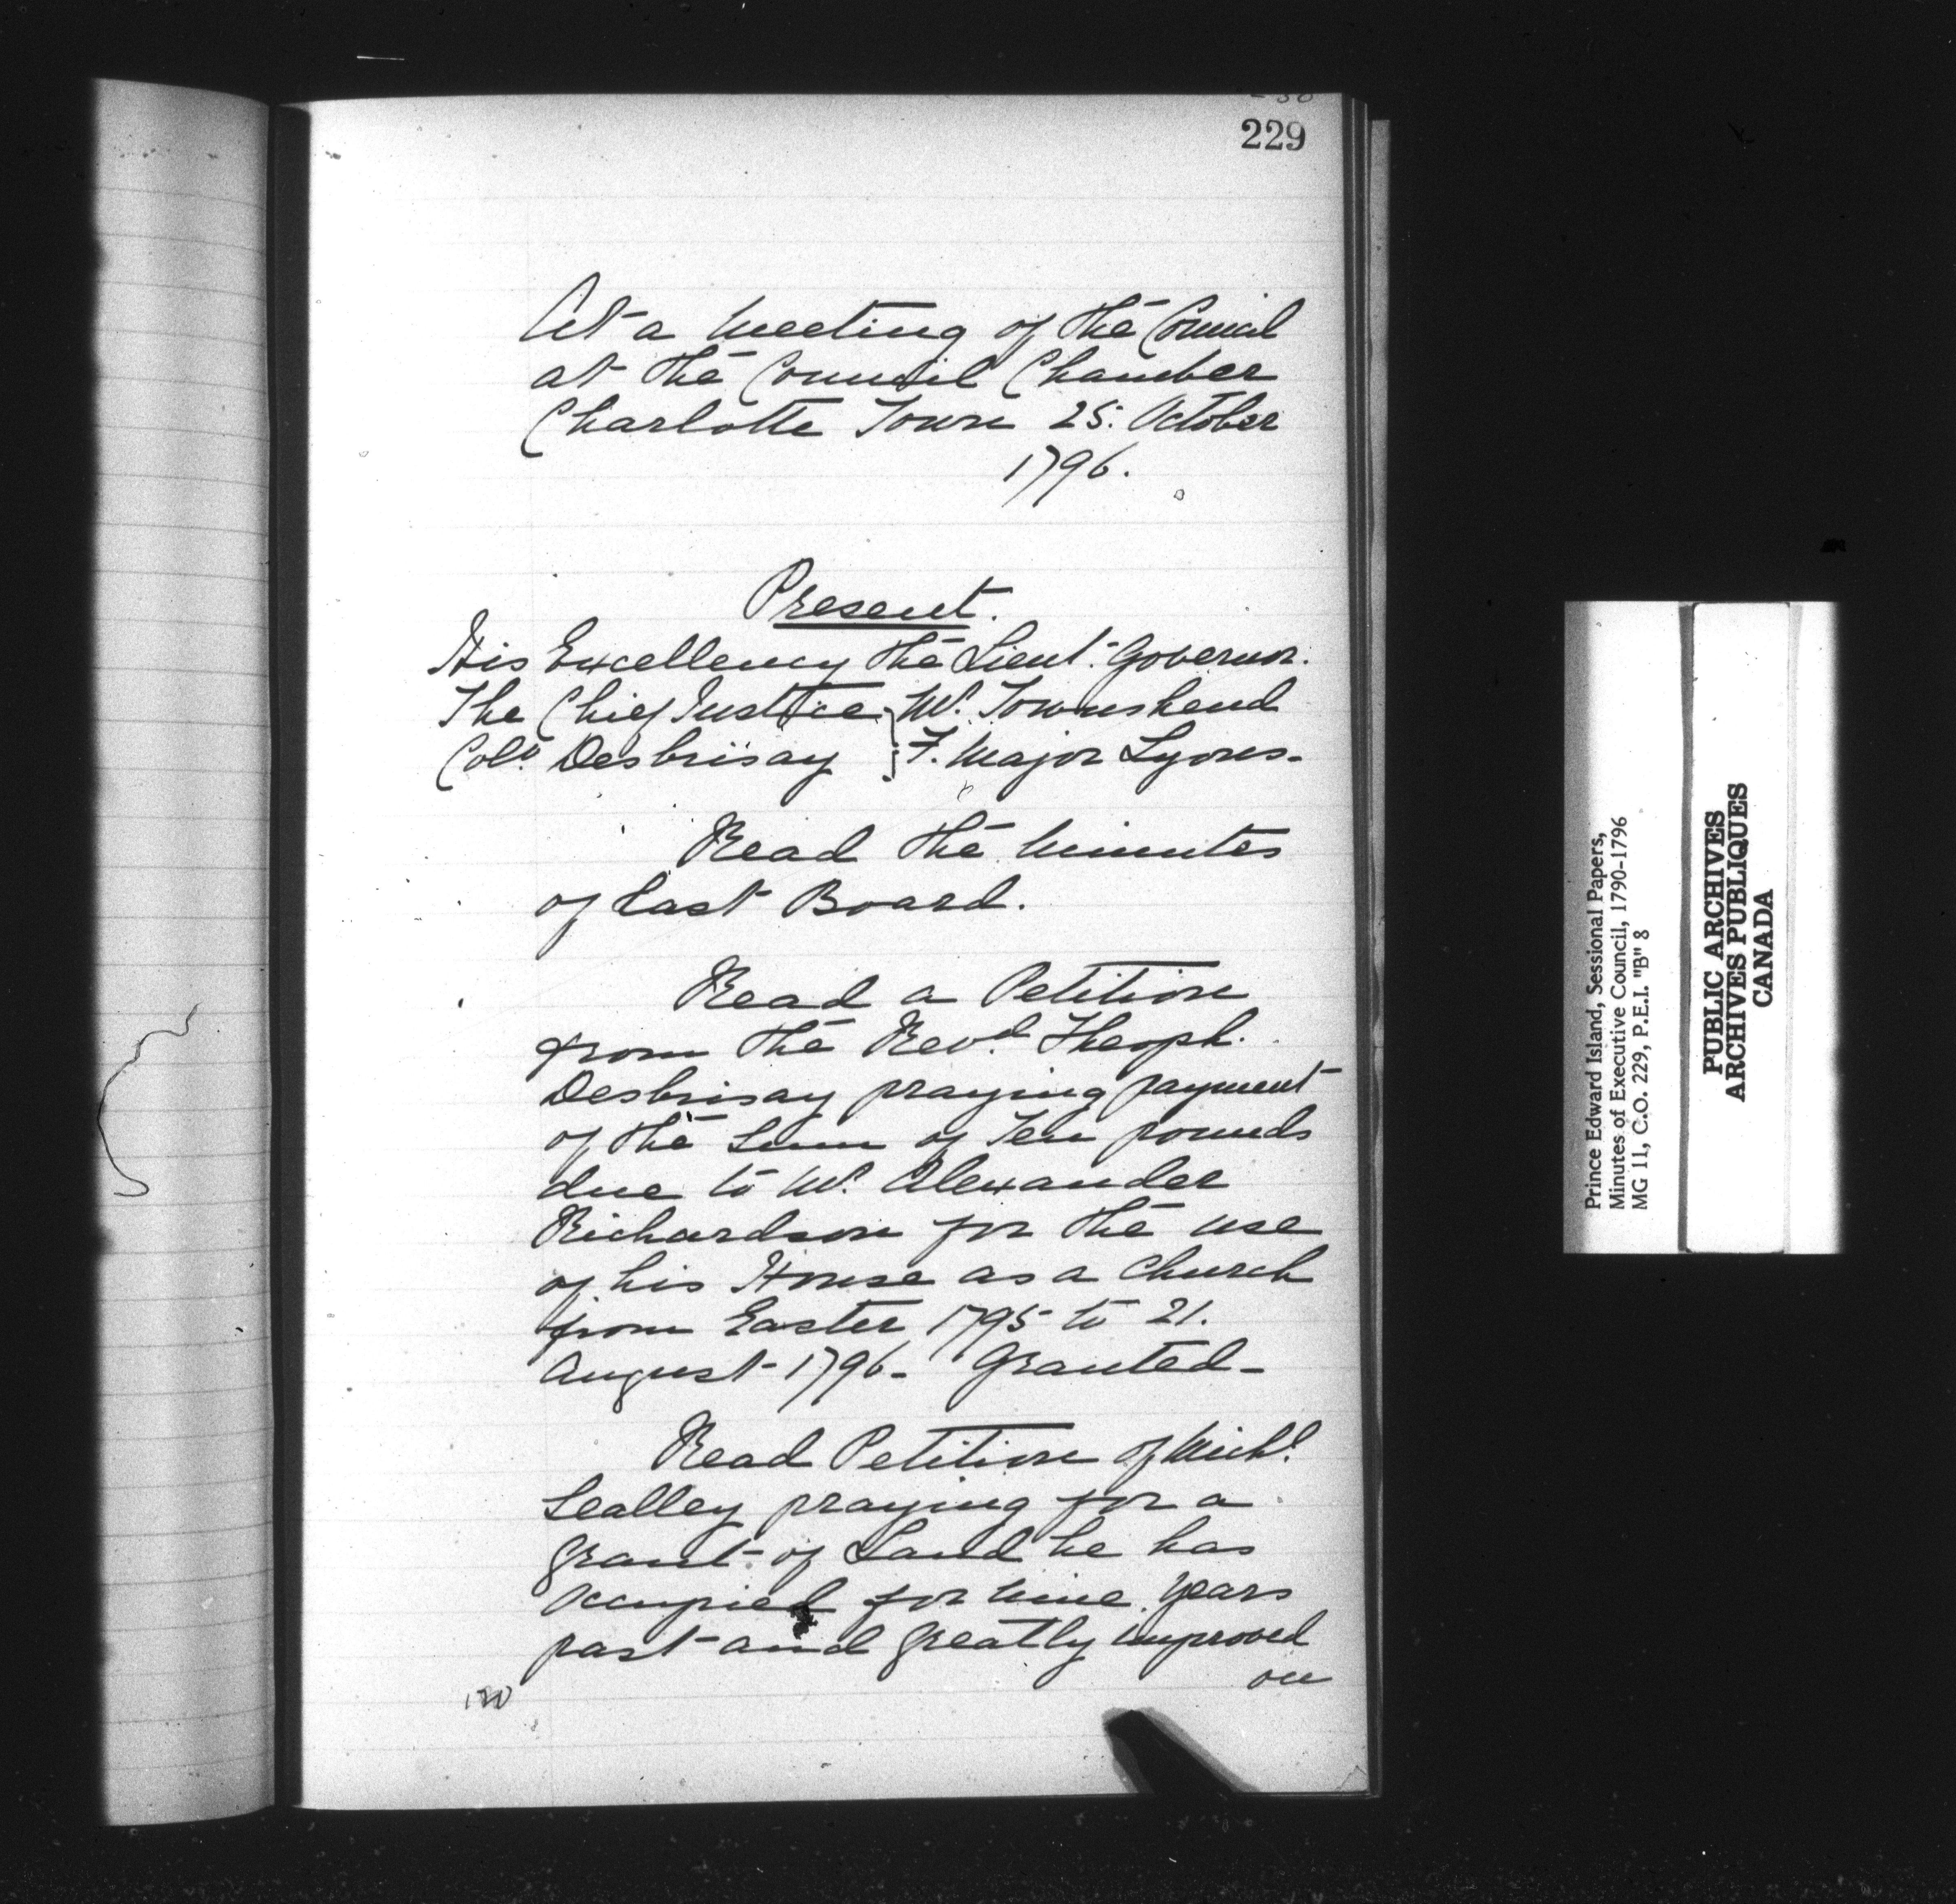 229
At a Meeting of the Council
at the Council Chamber
Charlotte Town 25. October
1796.
Present.
His Excellency the Lieut. Governor.
The Chief Justice } Mr. Townshend
Colo. Desbrisay } F. Major Lyons-
Read the Minutes
of Last Board.
Read a Petition
from the Revd. Theoph.
Desbrisay praying payment
of the Sum of Ten pounds
due to Mr. Alexander
Richardson for the use
of his House as a Church
from Easter 1795 to 21.
August 1796- Granted-
Read Petition of Michl.
Lealley praying for a
grant of Land he has
occupied for nine years
past and greatly improved
on
Prince Edward Island, Sessional Papers,
Minutes of Executive Council, 1790-1796
MG 11, C.O. 229, P.E.I. "B" 8
PUBLIC ARCHIVES
ARCHIVES PUBLIQUES
CANADA